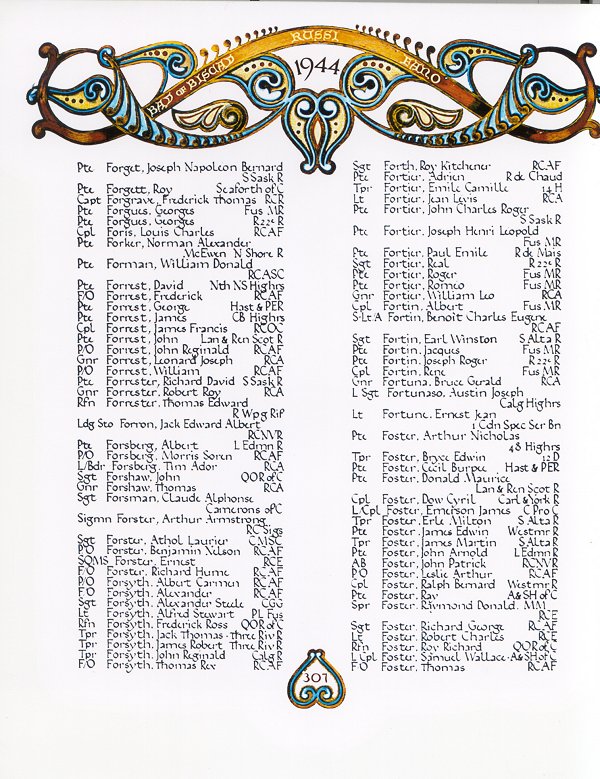 BAY OF BISCAY RUSSI FANO
1944
Pte Forget, Joseph Napoleon Bernard
S Sask R
Pte Forgett, Roy Seaforth of C
Capt Forgrave, Frederick Thomas RCR
Pte Forgues, Georges Fus MR
Pte Forgues, Georges R 22e R
Cpl Foris, Louis Charles RCAF
Pte Forker, Norman Alexander
McEwen N Shore R
Pte Forman, William Donald
RCASC
Pte Forrest, David Nth NS Highrs
F/O Forrest, Frederick RCAF
Pte Forrest, George Hast & PER
Pte Forrest, James CB Highrs
Cpl Forrest, James Francis RCOC
Pte Forrest, John Lan & Ren Scot R
P/O Forrest, John Reginald RCAF
Gnr Forrest, Leonard Joseph RCA
P/O Forrest, William RCAF
Pte Forrester, Richard David S Sask R
Gnr Forrester, Robert Roy RCA
Rfn Forrester, Thomas Edward
R Wpg Rif
Ldg Sto Forron, Jack Edward Albert
RCNVR
Pte Forsberg, Albert L Edmn R
P/O Forsberg, Morris Soren RCAF
L/Bdr Forsberg, Tim Ador RCA
Sgt Forshaw, John QOR of C
Gnr Forshaw, Thomas RCA
Sgt Forsman, Claude Alphonse
Camerons of C
Sigmn Forster, Arthur Armstrong
RC Sigs
Sgt Forster, Athol Laurie CMSC
P/O Forster, Benjamin Nelson RCAF
SQMS Forster, Ernest RCE
F/O Forster, Richard Hume RCAF
P/O Forsyth, Albert Carmen RCAF
F/O Forsyth, Alexander RCAF
Sgt Forsyth, Alexander Steele CGG
Lt Forsyth, Alfred Stewart PL Fus
Rfn Forsyth, Frederick Ross QOR of C
Tpr Forsyth, Jack Thomas · Three Riv R
Tpr Forsyth, James Robert Three Riv R
Tpr Forsyth, John Reginald Calg R
F/O Forsyth, Thomas Rex RCAF
Sgt Forth, Roy Kitchener RCAF
Pte Fortier, Adrien R de Chaud
Tpr Fortier, Emile Camille 14 H
Lt Fortier, Jean Levis RCA
Pte Fortier, John Charles Roger
S Sask R
Pte Fortier, Joseph Henri Leopold
Fus MR
Pte Fortier, Paul Emile R de Mais
Sgt Fortier, Real R 22e R
Pte Fortier, Roger Fus MR
Pte Fortier, Romeo Fus MR
Gnr Fortier, William Leo RCA
Cpl Fortin, Albert Fus MR
S·Lt A Fortin, Benoit Charles Eugene
RCAF
Sgt Fortin, Earl Winston S Alta R
Pte Fortin, Jacques Fus MR
Pte Fortin, Joseph Roger R 22e R
Cpl Fortin, Rene Fus MR
Gnr Fortuna, Bruce Gerald RCA
L Sgt Fortunaso, Austin Joseph
Calg Highrs
Lt Fortune, Ernest Jean
1 Cdn Spec Ser Bn
Pte Foster, Arthur Nicholas
48 Highrs
Tpr Foster, Bryce Edwin 12 D
Pte Foster, Cecil Burpee Hast & PER
Pte Foster, Donald Maurice
Lan & Ren Scot R
Cpl Foster, Dow Cyril Carl & York R
L/Cpl Foster, Emerson James C Pro C
Tpr Foster, Erle Milton S Alta R
Pte Foster, James Edwin Westmr R
Tpr Foster, James Martin S Alta R
Pte Foster, John Arnold L Edmn R
AB Foster, John Patrick RCNVR
P/O Foster, Leslie Arthur RCAF
Cpl Foster, Ralph Bernard Westmr R
Pte Foster, Ray A & SH of C
Spr Foster, Raymond Donald, MM
RCE
Sgt Foster, Richard George RCAF
Lt Foster, Robert Charles RCE
Rfn Foster, Roy Richard QOR of C
L Cpl Foster, Samuel Wallace · A & SH of C
F O Foster, Thomas RCAF
307